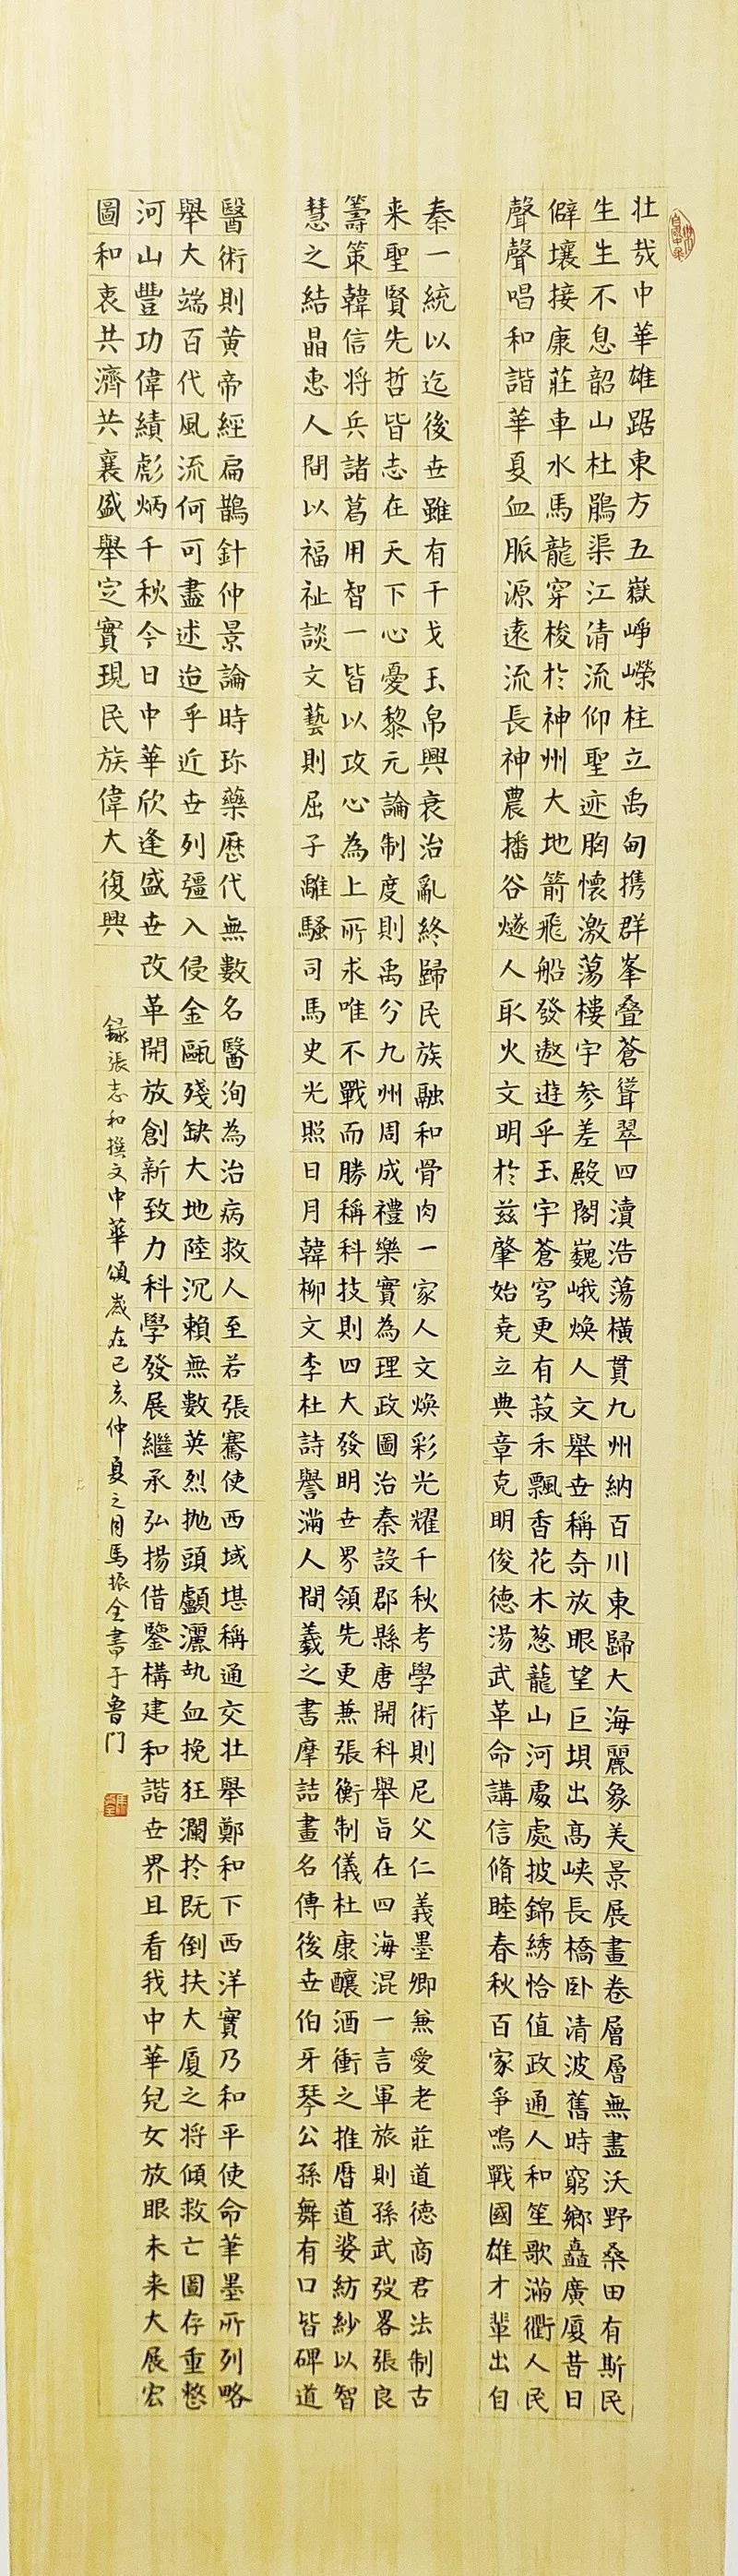 壯哉中華雄踞東方五嶽崢嶸柱立禹甸携群峯疊蒼聳翠四瀆浩蕩橫貫九州納百川東歸大海麗象美景展畫卷層層無盡沃野桑田有斯民
生生不息韶山杜鵑渠江清流仰聖迹胸懷激蕩樓宇参差殿閣巍峨煥人文舉世稱奇放眼望巨垻出高峽長橋卧清波舊時窮鄉矗廣厦昔日
僻壤接康莊車水馬龍穿梭於神州大地箭飛船發遨遊乎玉宇蒼穹更有菽禾飄香花木葱蘢山河處處披錦綉恰值政通人和笙歌滿衢人民
聲聲唱和諧華夏血脈源遠流長神農播谷燧人取火文明於兹肇始堯立典章克明俊德湯武革命講信脩睦春秋百家爭鳴戰國雄才輩出自
秦一統以迄後世雖有干戈玉帛興衰治亂終歸民族融和骨肉一家人文煥彩光耀千秋考學術則尼父仁義墨卿兼愛老莊道德商君法制古
来聖賢先哲皆志在天下心憂黎元論制度則禹分九州周成禮樂實為理政圖治秦設郡縣唐開科舉旨在四海混一言軍旅則孫武弢畧張良
籌策韓信将兵諸葛用智一皆以攻心為上所求唯不戰而勝稱科技則四大發明世界領先更兼張衡制儀杜康釀酒衝之推曆道婆紡紗以智
慧之結晶惠人間以福祉談文藝則屈子離騷司馬史光照日月韓柳文李杜詩譽滿人間羲之書摩詰畫名傳後世伯牙琴公孫舞有口皆碑道
醫術則黄帝經扁鵲針仲景論時珍藥歷代無數名醫洵為治病救人至若張騫使西域堪稱通交壯舉鄭和下西洋實乃和平使命筆墨所列略
舉大端百代風流何可盡述迨乎近世列彊入侵金甌殘缺大地陸沉賴無數英烈抛頭顱灑热血挽狂瀾於既倒扶大厦之将傾救亡圖存重整
河山豐功偉績彪炳千秋今日中華欣逢盛世改革開放創新致力科學發展繼承弘揚借鑒構建和諧世界且看我中華兒女放眼未来大展宏
圖和衷共濟共襄盛舉定實現民族偉大復興
錄張志和撰文中華頌歲在己亥仲夏之月馬振全書于魯门